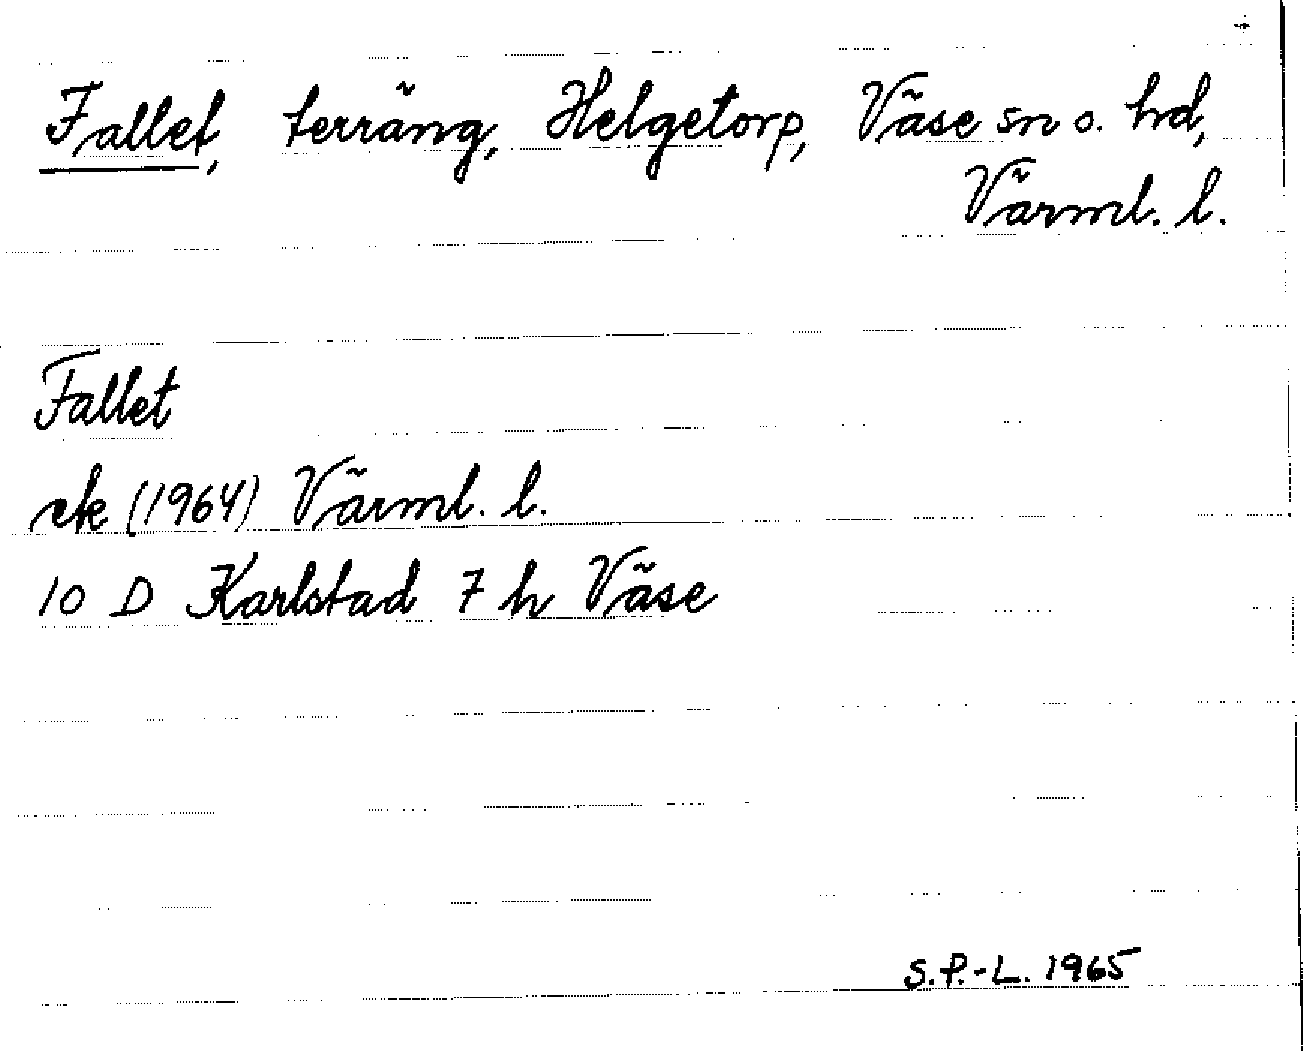 Fallet, terräng, Helgetorp, Väse sn o. hd,
Värml. l.
Fallet
ek (1964) Värml. l.
10 D Karlstad 7 h Väse
S.P.-L. 1965